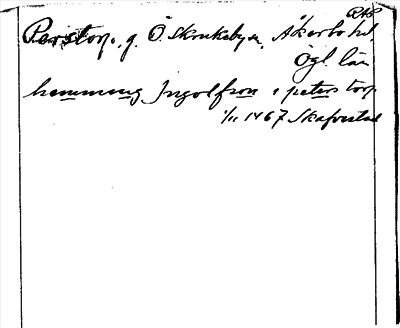 RAP
Perstorp. g. Ö. Skrukeby sn. Åkerbo hd
Ögl. län
hemming Ingolfson i peters torp
1/11 1467 Skafvestad